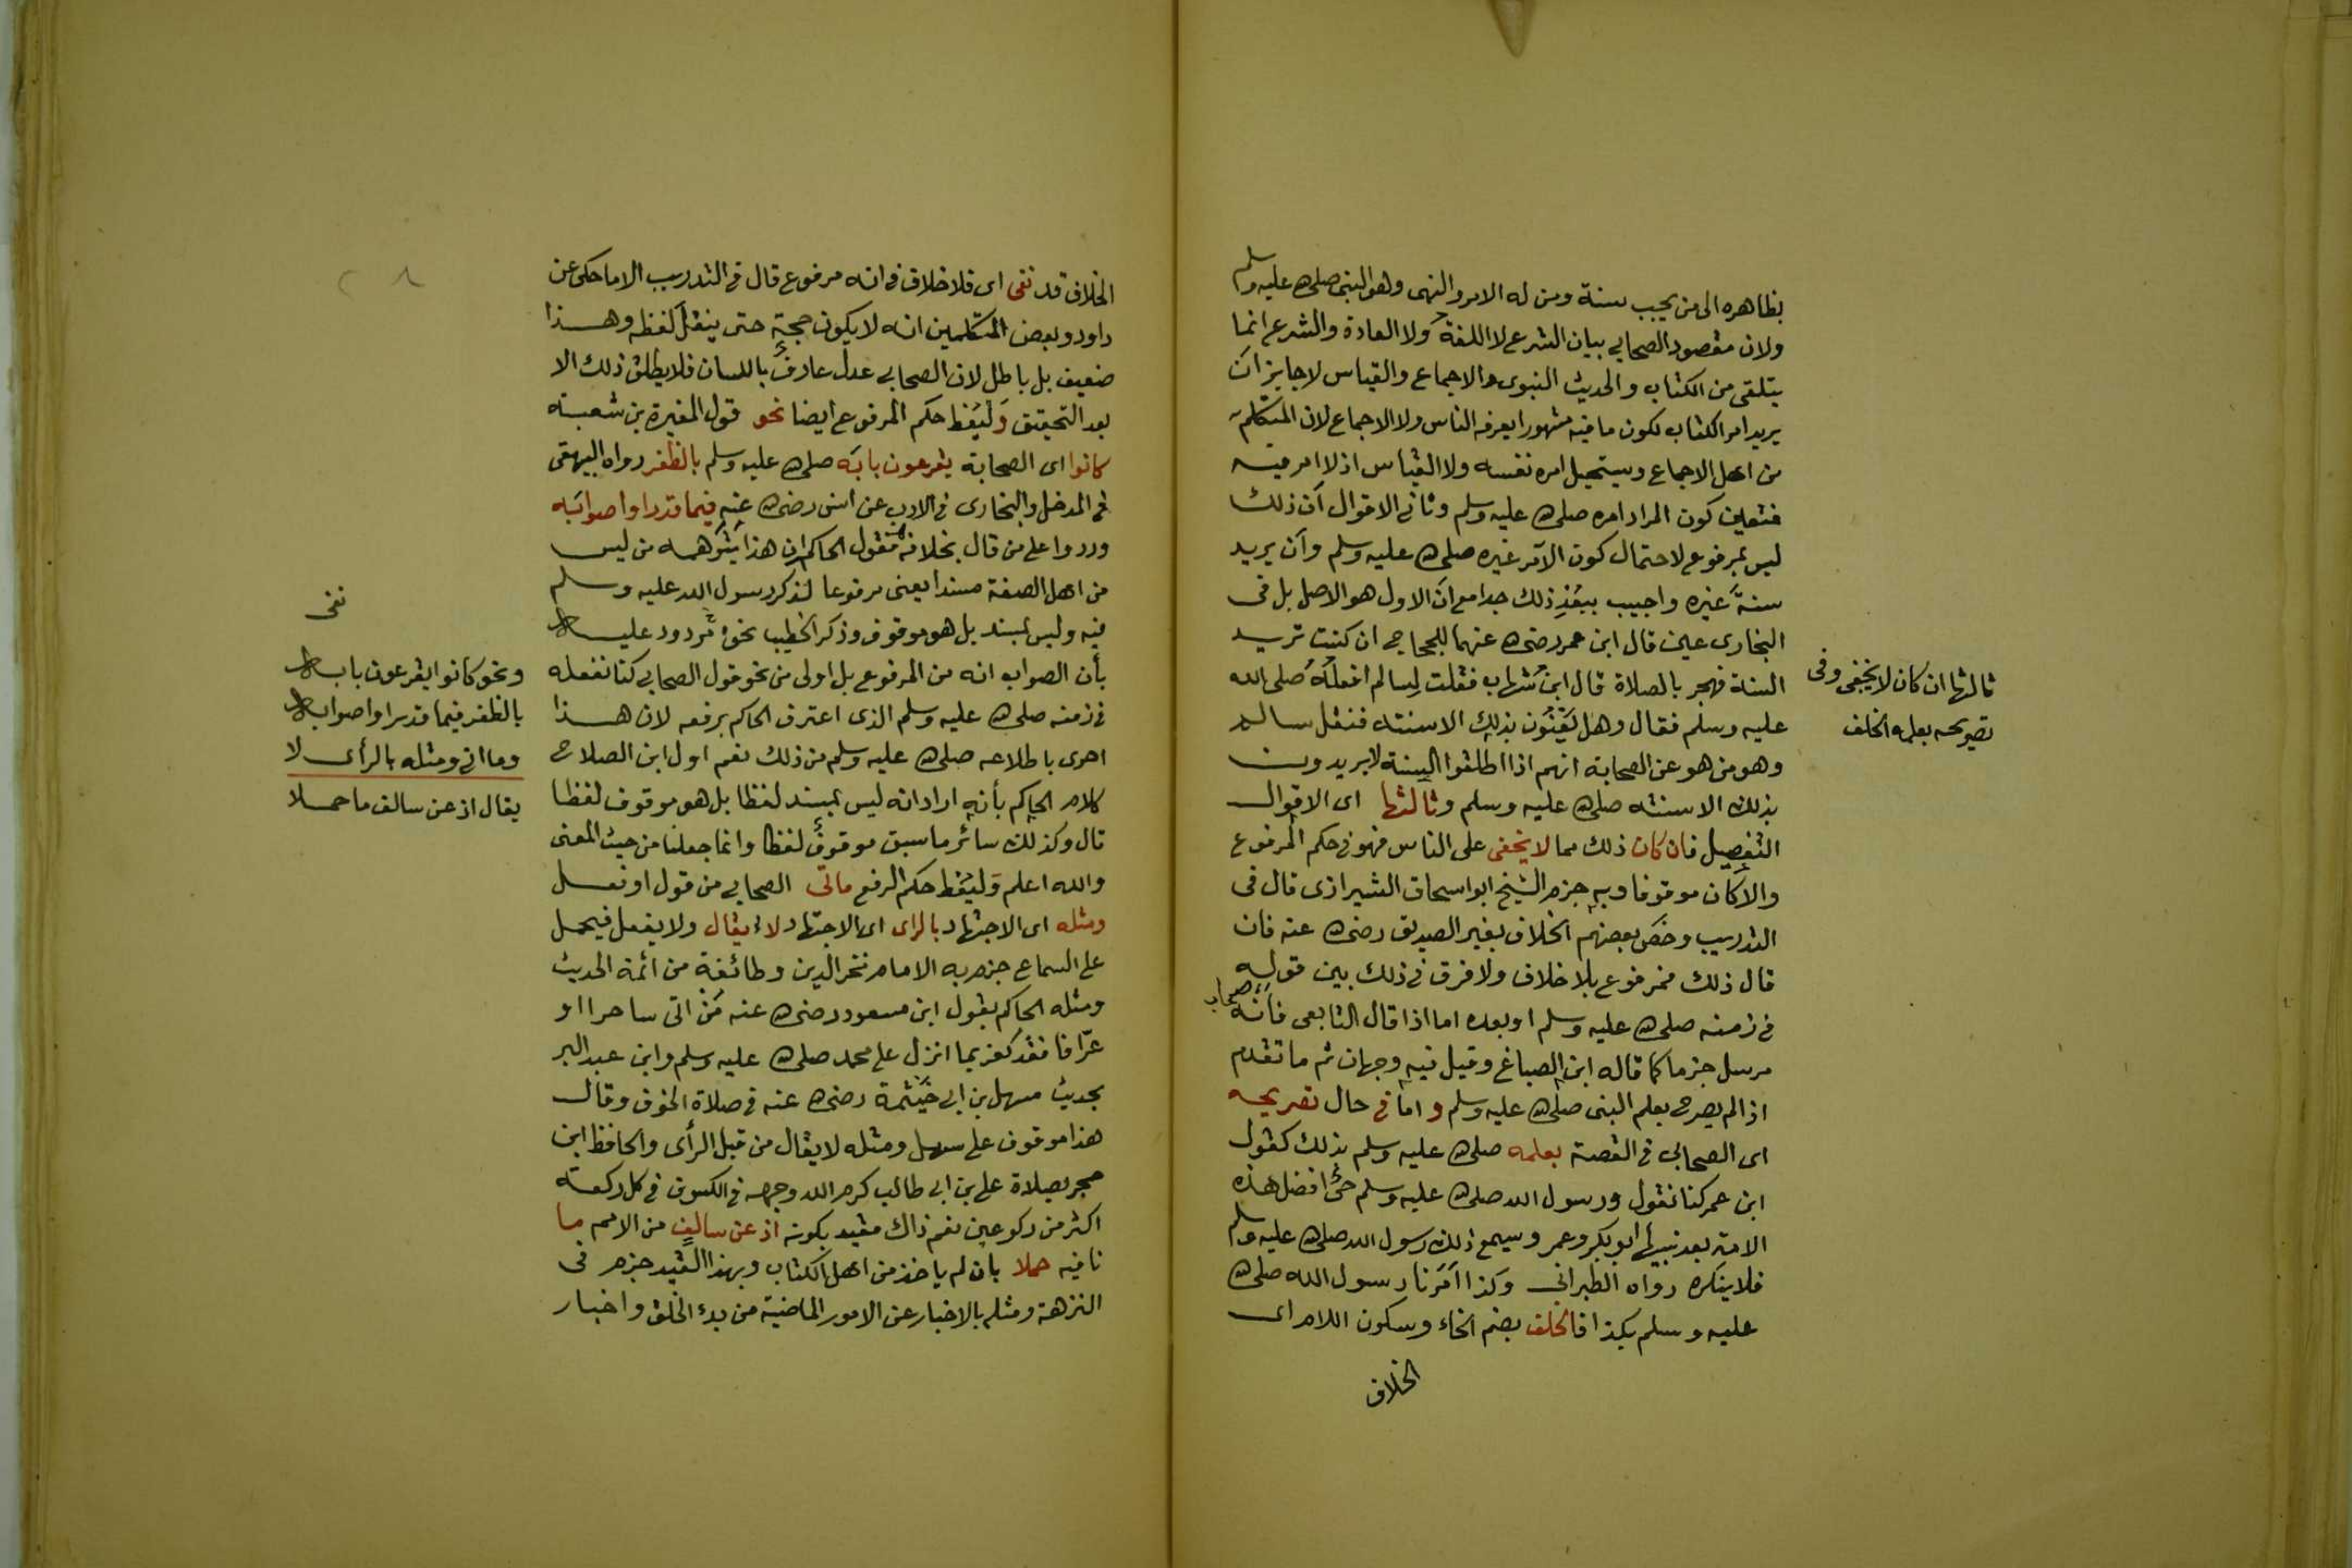 بظاهره الى من يجب سنة ومن له الامر والنهى وهو النبى صلى الله عليه وسلم
ولان مقصود الصحابى بيان الشرع لا اللغة ولا العادة والشرع انما
يتلقى من الكتاب والحديث النبوى والاجماع والقياس لا جايز ان
يريد امر الكتاب لكون ما فيه مشهورا يعرفه الناس ولا الاجماع لان المتكلم
من اهل الاجماع ويستحيل امره نفسه ولا القياس اذ لا امر فيه
فتعين كون المراد امره صلى الله عليه وسلم وثانى الاقوال ان ذلك
ليس بمرفوع لاحتمال كون الآمر غيره صلى الله عليه وسلم وان يريد
سنة غيره واجيب ببعد ذلك جدا مع ان الاول هو الاصل بل فى
البخارى عين قال ابن عمر رضى الله عنهما للحجاج ان كنت تريد
السنة فهجر بالصلاة قال ابن شهاب فقلت لسالم افعله صلى الله
عليه وسلم فقال وهل يعنون بذلك الا سنته فنقل سالم
وهو من هو عن الصحابة انهم اذا اطلقوا السنة لا يريدون
بذلك الا سنته صلى الله عليه وسلم وثالثها اى الاقوال
التفصيل فان كان ذلك مما لا يخفى على الناس فهو فى حكم المرفوع
والا كان موقوفا وبه جزم الشيخ ابو اسحاق الشيرازى قال فى
التدريب وخص بعضهم الخلاف بغير الصديق رضى الله عنه فان
قال ذلك فمرفوع بلا خلاف ولا فرق فى ذلك بين قوله
صحابى
فى زمنه صلى الله عليه وسلم او بعده اما اذا قال التابعى فانه
مرسل جزما كما قاله ابن الصباغ وقيل فيه وجهان ثم ما تقدم
اذا لم يصرح بعلم النبى صلى الله عليه وسلم واما فى حال تصريحه
اى الصحابى فى القصة بعلمه صلى الله عليه وسلم بذلك كقول
ابن عمر كنا نقول ورسول الله صلى الله عليه وسلم حى افضل هذه
الامة بعد نبيها ابو بكر وعمر ويسمع ذلك رسول الله صلى الله عليه وسلم
فلا ينكره رواه الطبرانى وكذا امرنا رسول الله صلى الله
عليه وسلم بكذا فالخلف بضم الخاء وسكون اللام اى
الخلاف
ثالثها ان كان لا يخفى وفى
تصريحه بعلمه الخلف
الخلاف قد نفى اى فلا خلاف فى انه مرفوع قال فى التدريب الا ما حكى عن
داود وبعض المتكلمين انه لا يكون حجة حتى ينقل لفظه وهذا
ضعيف بل باطل لان الصحابى عدل عارف باللسان فلا يطلق ذلك الا
بعد التحقيق وليعط حكم المرفوع ايضا نحو قول المغيرة بن شعبة
كانوا اى الصحابة يقرعون بابه صلى الله عليه وسلم بالظفر رواه البيهقى
فى المدخل والبخارى فى الادب عن انس رضى الله عنه فيما قد راوا صوابه
وردوا على من قال بخلافه كقول الحاكم ان هذا يتوهمه من ليس
من اهل الصنعة مسندا يعنى مرفوعا لذكر رسول الله عليه وسلم
فيه وليس بمسند بل هو موقوف وذكر الخطيب نحوه مردود عليه
بأن الصواب انه من المرفوع بل اولى من نحو قول الصحابى كنا نفعله
فى زمنه صلى الله عليه وسلم الذى اعترف الحاكم برفعه لان هذا
احرى باطلاعه صلى الله عليه وسلم من ذلك نعم اول ابن الصلاح
كلام الحاكم بأنه اراد انه ليس بمسند لفظا بل هو موقوف لفظا
قال وكذلك سائر ما سبق موقوف لفظا وانما جعلنا من حيث المعنى
والله اعلم وليعط حكم الرفع ماتى الصحابى من قول او فعل
ومثله اى الاجتهاد بالراى اى الاجتهاد لا يقال ولا يفعل فيحمل
على السماع جزم به الامام فخر الدين وطائفة من ائمة الحديث
ومثله الحاكم بقول ابن مسعود رضى الله عنه من اتى ساحرا او
عرافا فقد كفر بما انزل على محمد صلى الله عليه وسلم وابن عبد البر
بحديث سهل بن ابى حيثمة رضى الله عنه فى صلاة الخوف وقال
هذا موقوف على سهل ومثله لا يقال من قبل الرأى والحافظ ابن
حجر بصلاة على بن ابى طالب كرم الله وجهه فى الكسوف فى كل ركعة
اكثر من ركوعين نعم ذاك مقيد بكونه اذ عن سالف من الامم ما
نافيه حملا بان لم ياخذ من اهل الكتاب وبهذا القيد جزم فى
النزهة ومثله بالاخبار عن الامور الماضية من بدء الخلق واخبار
نفى
ونحو كانوا يقرعون بابه
بالظفر فيما قد راوا صوابه
وما اتى ومثله بالرأى لا
يقال اذ عن سالف ما حملا